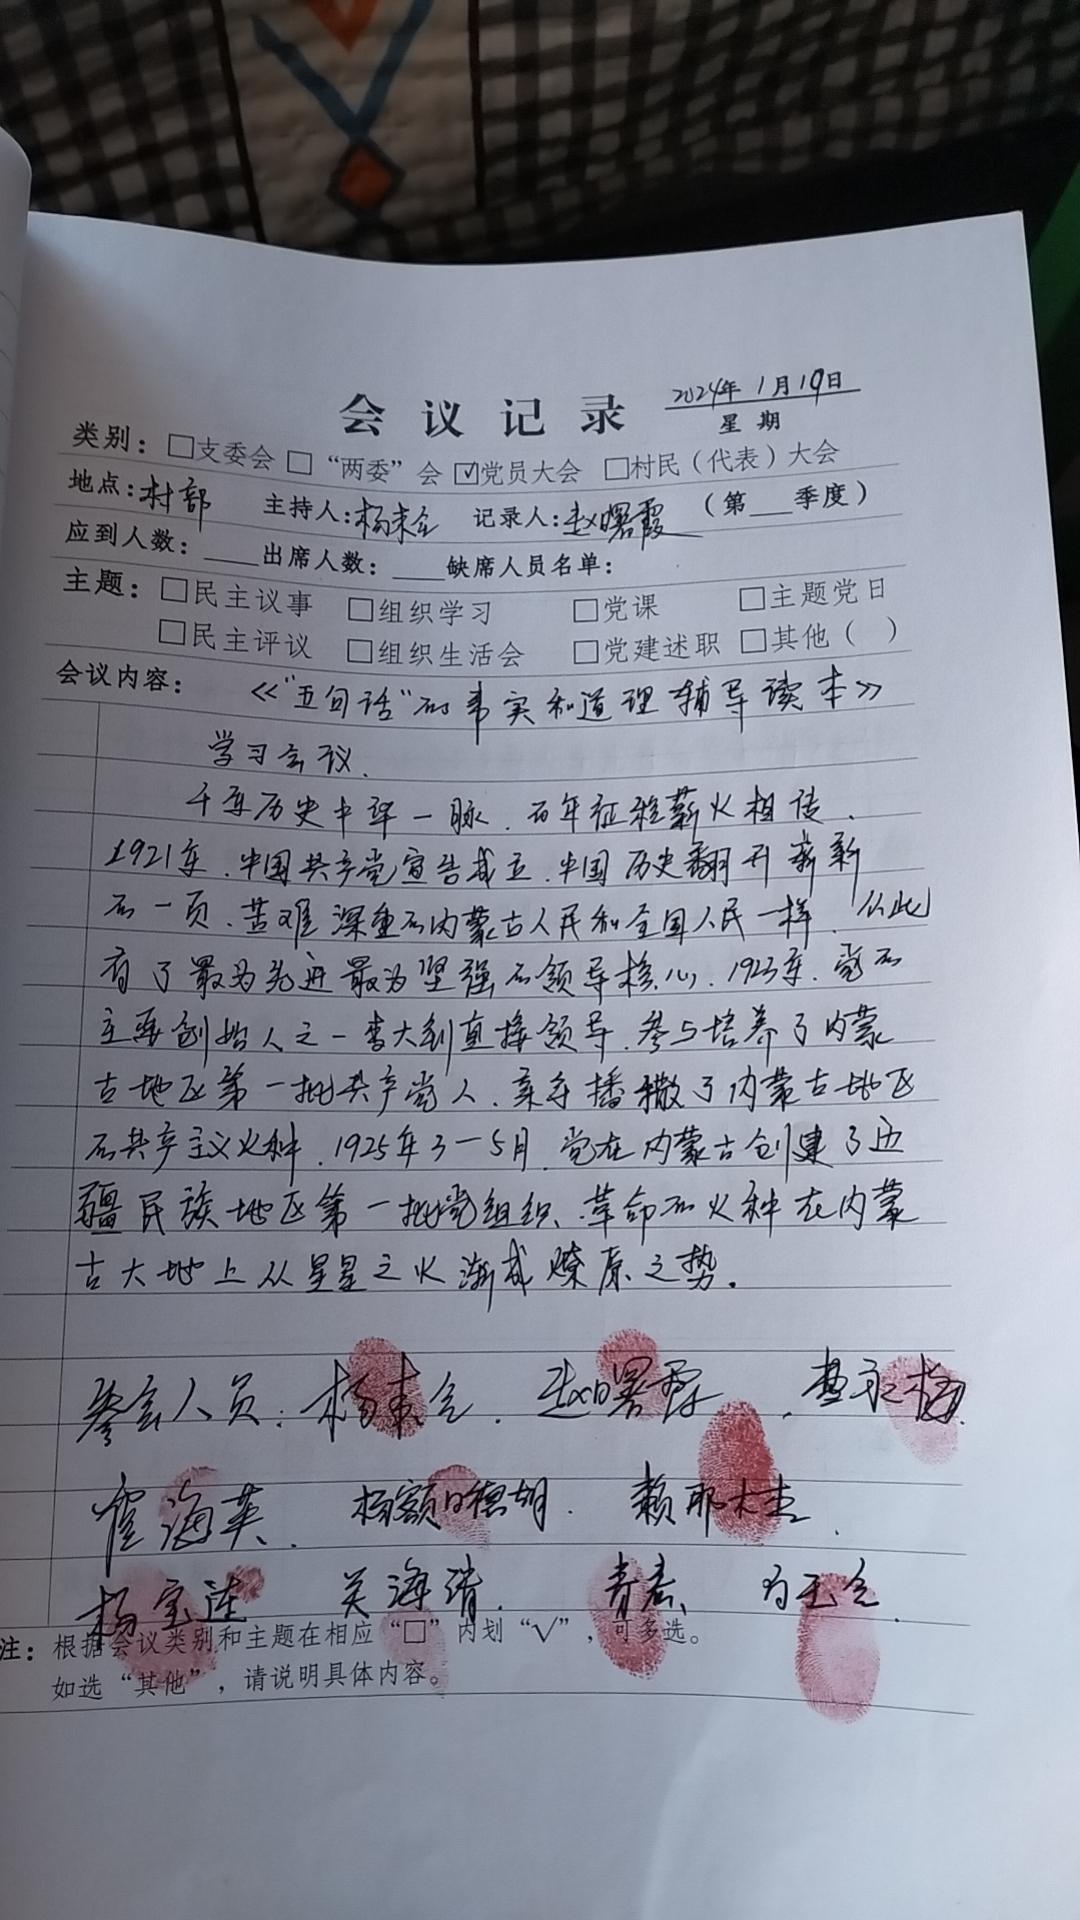 2024年 1月19日
会议记录 星期
类别：□支委会 □“两委”会 ☑党员大会 □村民（代表）大会
地点：村部 主持人：杨来全 记录人：赵曙霞 （第 季度）
应到人数： 出席人数： 缺席人员名单：
主题：□民主议事 □组织学习 □党课 □主题党日
□民主评议 □组织生活会 □党建述职 □其他（ ）
会议内容： 《“五句话”的事实和道理辅导读本》
学习会议.
千年历史中华一脉.百年征程薪火相传.
1921年.中国共产党宣告成立.中国历史翻开崭新
的一页.苦难深重的内蒙古人民和全国人民一样.从此
有了最为先进最为坚强的领导核心.1923年.党的
主要创始人之一李大钊直接领导.参与培养了内蒙
古地区第一批共产党人.亲手播撒了内蒙古地区
的共产主义火种.1925年3—5月.党在内蒙古创建了边
疆民族地区第一批党组织、革命的火种在内蒙
古大地上从星星之火渐成燎原之势。
参会人员：杨来全. 赵曙霞
海英. 杨额日德胡. 赖那木吉.
杨宝莲 关海清. 青春、 玉全.
注：根据会议类别和主题在相应“□”内划“√”，可多选。
如选“其他”，请说明具体内容。